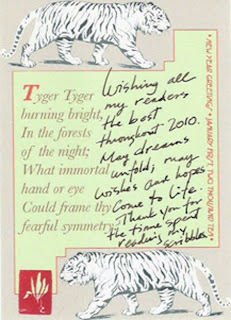 Tyger Tyger
burning bright,
In the forests
of the night;
What immortal
hand or eye
Could frame thy
fearful symmetry?
Wishing all
my readers
the best
throughout 2010.
May dreams
unfold; may
wishes and hopes
come to life.
Thank you for
the time spent
reading my
scribbles
NEW YEAR GREETINGS
JANUARY 1ST TWO THOUSAND TEN